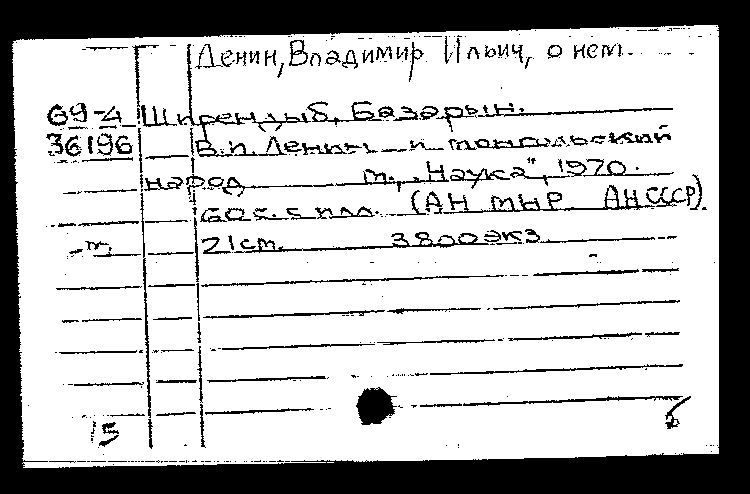 Ленин, Владимир Ильич, о нем.
69-4 Ширендыб, Базарын.
36196 В.И. Ленин и монгольский
народ м., „Наука", 1970.
60 с. с илл. (АН МНР АН СССР).
м. 21 см. 3800 экз.
15